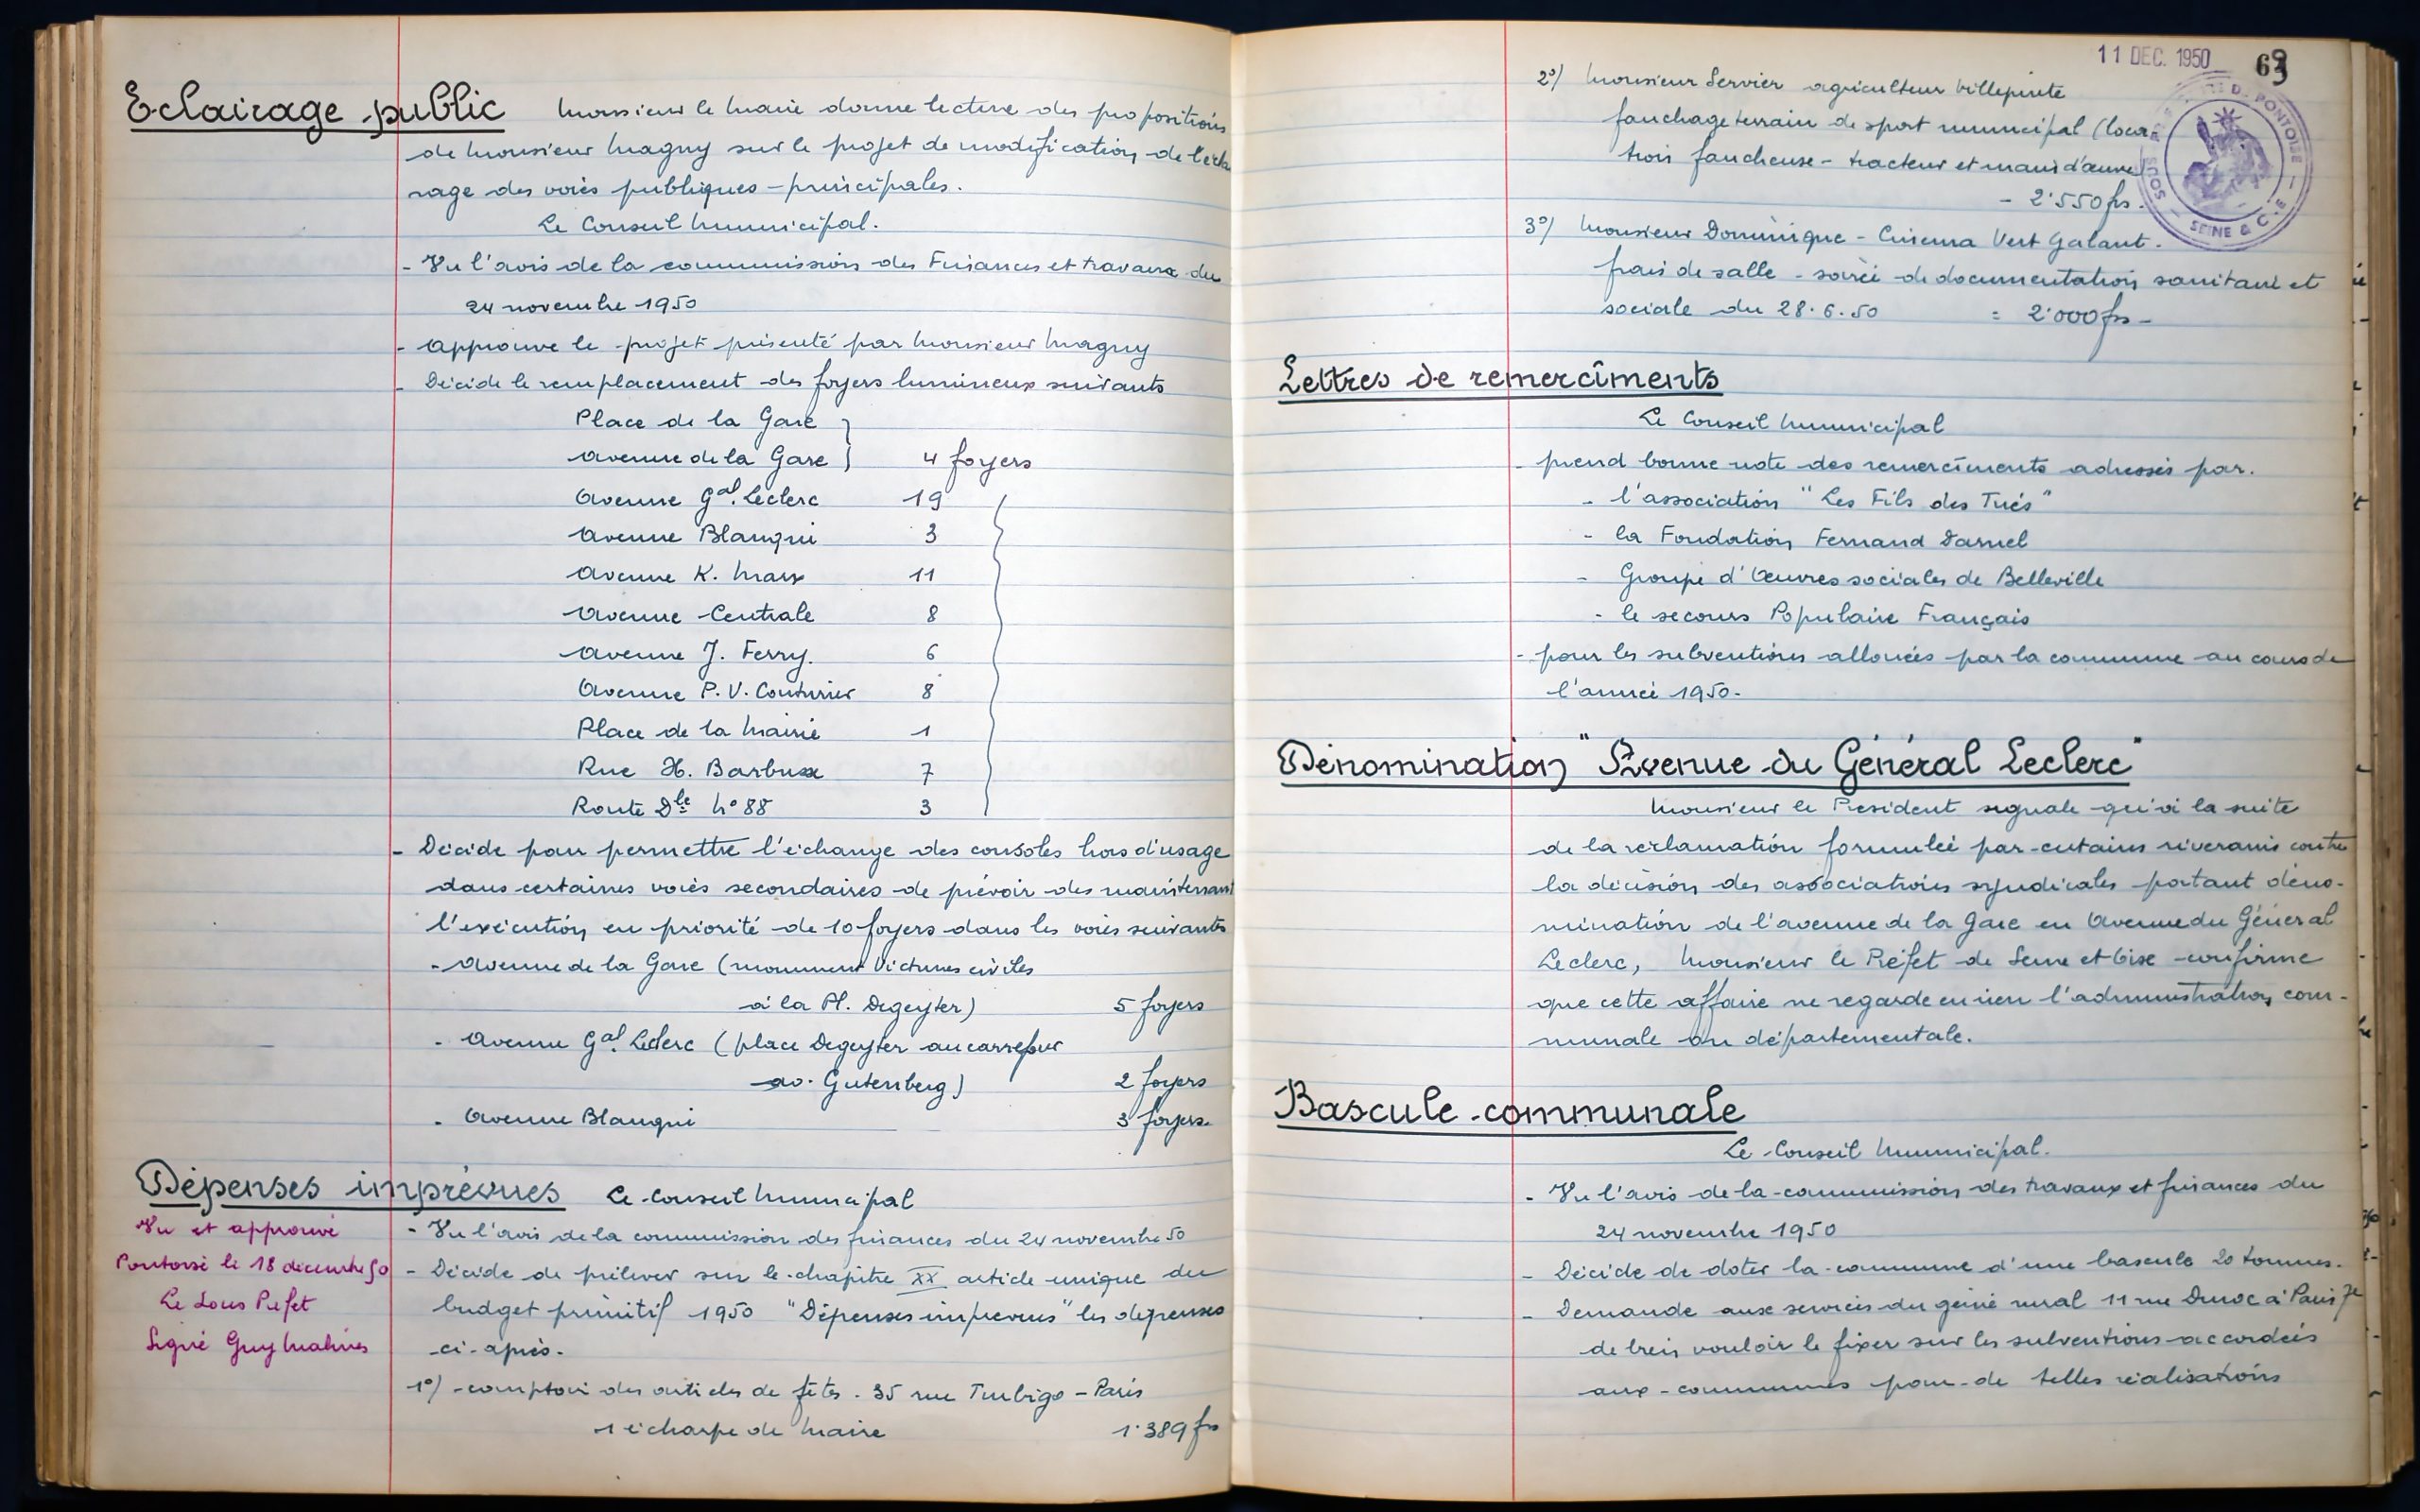 Eclairage public Monsieur le Maire donne lecture des propositions
de Monsieur Magny sur le projet de modification de l'éclai
rage des voies publiques - principales.
Le Conseil Municipal.
- Vu l'avis de la commission des Finances et travaux du
24 novembre 1950
- Approuve le projet présenté par Monsieur Magny
- Décide le remplacement des foyers lumineux suivants
Place de la Gare }
Avenue de la Gare } 4 foyers
Avenue Gal. Leclerc 19
Avenue Blanqui 3
Avenue K. Marx 11
Avenue Centrale 8
Avenue J. Ferry. 6
Avenue P. V. Couturier 8
Place de la Mairie 1
Rue H. Barbusse 7
Route Dle N° 88 3
- Décide pour permettre l'échange des consoles hors d'usage
dans certaines voies secondaires de prévoir dès maintenant
l'exécution en priorité de 10 foyers dans les voies suivantes
- Avenue de la Gare (monument Victimes civiles
à la Pl. Degeyter) 5 foyers
- Avenue Gal. Leclerc (place Degeyter au carrefour
av. Gutenberg) 2 foyers
- Avenue Blanqui 3 foyers.
Dépenses imprévues Le Conseil Municipal
Vu et approuvé
Pontoise le 18 décembre 50
Le Sous Préfet
Signé Guy
- Vu l'avis de la commission des finances du 24 novembre 50
- Décide de prélever sur le chapitre XX article unique du
budget primitif 1950 "Dépenses imprévues" les dépenses
ci-après.
1°) - comptoir des articles de fêtes. 35 rue Turbigo - Paris
1 écharpe de Maire 1.389 frs
11 DEC. 1950 63
SOUS PRÉFECTURE DE PONTOISE
SEINE & OISE
2°) Monsieur Servier agriculteur Villepinte
fauchage terrain de sport municipal (loca
tion faucheuse - tracteur et main d'œuvre)
- 2.550 frs.
3°) Monsieur Dominique - Cinéma Vert Galant.
frais de salle - soirée de documentation sanitaire et
sociale du 28.6.50 = 2.000 frs -
Lettres de remercîments
Le Conseil Municipal
- prend bonne note des remercîments adressés par.
- l'association "Les Fils des Tués"
- la Fondation Fernand
- Groupe d'Œuvres sociales de Belleville
- le secours Populaire Français
- pour les subventions allouées par la commune au cours de
l'année 1950.
Dénomination "Avenue du Général Leclerc"
Monsieur le Président signale qu'à la suite
de la réclamation formulée par certains riverains contre
la décision des associations syndicales portant déno-
mination de l'avenue de la Gare en Avenue du Général
Leclerc, Monsieur le Préfet de Seine et Oise confirme
que cette affaire ne regarde en rien l'administration com-
munale ou départementale.
Bascule communale
Le Conseil Municipal.
- Vu l'avis de la commission des travaux et finances du
24 novembre 1950
- Décide de doter la commune d'une bascule 20 tonnes.
- Demande aux services du génie rural 11 rue Duroc à Paris 7e
de bien vouloir le fixer sur les subventions accordées
aux communes pour de telles réalisations